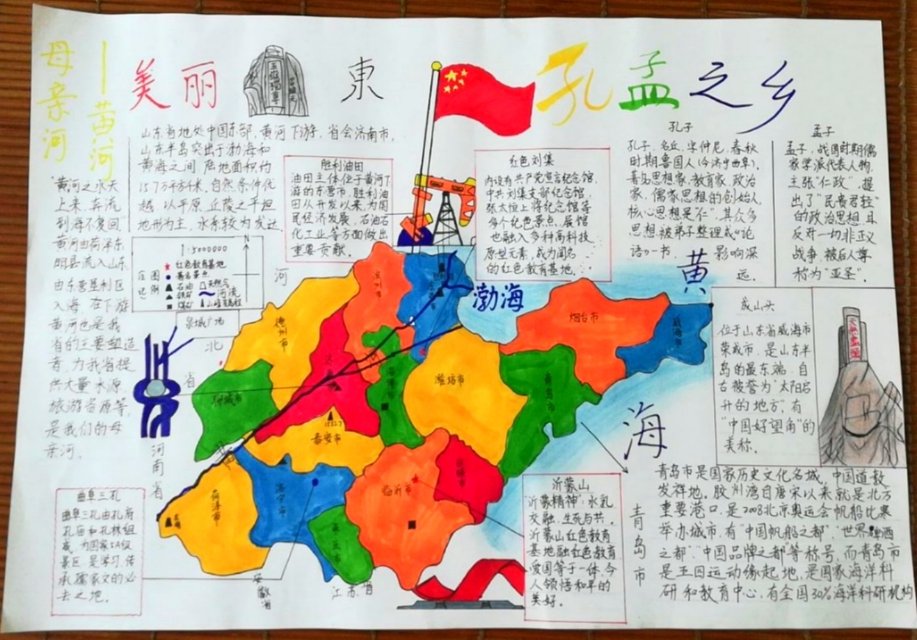 母亲河——黄河
美丽
東
孔孟之乡
"黄河之水天
上来,奔流
到海不复回"
黄河由菏泽东
明县流入山东
由东营垦利区
入海,在下游
黄河也是我
省的主要塑造
者,为我省提
供大量水源
旅游资源等,
是我们的母
亲河。
山东省地处中国东部,黄河下游,省会济南市,
山东半岛突出于渤海和
黄海之间,陆地面积约
15.7万平方千米,自然条件优
越,以平原、丘陵之平坦
地形为主,水系较为发达
胜利油田
油田主体位于黄河下
游的东营市,胜利油
田从开发以来,为国
民经济发展、石油石
化工业等方面做出
重要贡献。
红色刘集
内设有共产党宣言纪念馆,
中共刘集支部纪念馆,
等
多个红色景点,展馆
也融入多种高科技
展型元素,成为闻名
的红色教育基地。
孔子
孔子,名丘,字仲尼,春秋
时期鲁国人(今济宁曲阜),
著名思想家、教育家、政治
家,儒家思想的创始人,
核心思想是"仁",其众多
思想被弟子整理成《论
语》一书,影响深
远。
孟子
孟子,战国时期儒
家学派代表人物,
主张"仁政",提
出了"民贵君轻"
的政治思想,且
反对一切非正义
战争,被后人尊
称为"亚圣"。
1:5000000
N
图例
红色教育基地
著名景点
石油
天然气
河流
铁矿
煤矿
泉城广场
河北省
河南省
安徽省
江苏省
渤海
黄海
德州市
滨州市
聊城市
泰安市
潍坊市
烟台市
威海市
青岛市
菏泽市
济宁市
枣庄市
临沂市
日照市
成山头
位于山东省威海市
荣成市,是山东半
岛的最东端,自
古被誉为"太阳启
升的地方",有
"中国好望角"的
美称。
曲阜三孔
曲阜三孔由孔府
孔庙和孔林组
成,为国家5A级
景区,是学习、传
承儒家文化的必
去之地。
沂蒙山
"沂蒙精神":水乳
交融,生死与共,
沂蒙山红色教育
基地融红色教育
爱国等于一体,令
人领悟和平的
美好。
青岛市
青岛市是国家历史文化名城,中国道教
发祥地。胶州湾自唐宋以来就是北方
重要港口,是2008北京奥运会帆船比赛
举办城市,有"中国帆船之都"、"世界啤酒
之都"、"中国品牌之都"等称号,而青岛市
是五四运动缘起地,是国家海洋科
研和教育中心,有全国30%海洋科研机构